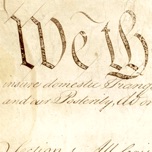 We th
insure domestic Tranq
and our Posterity, do or
Section. 1. All legis